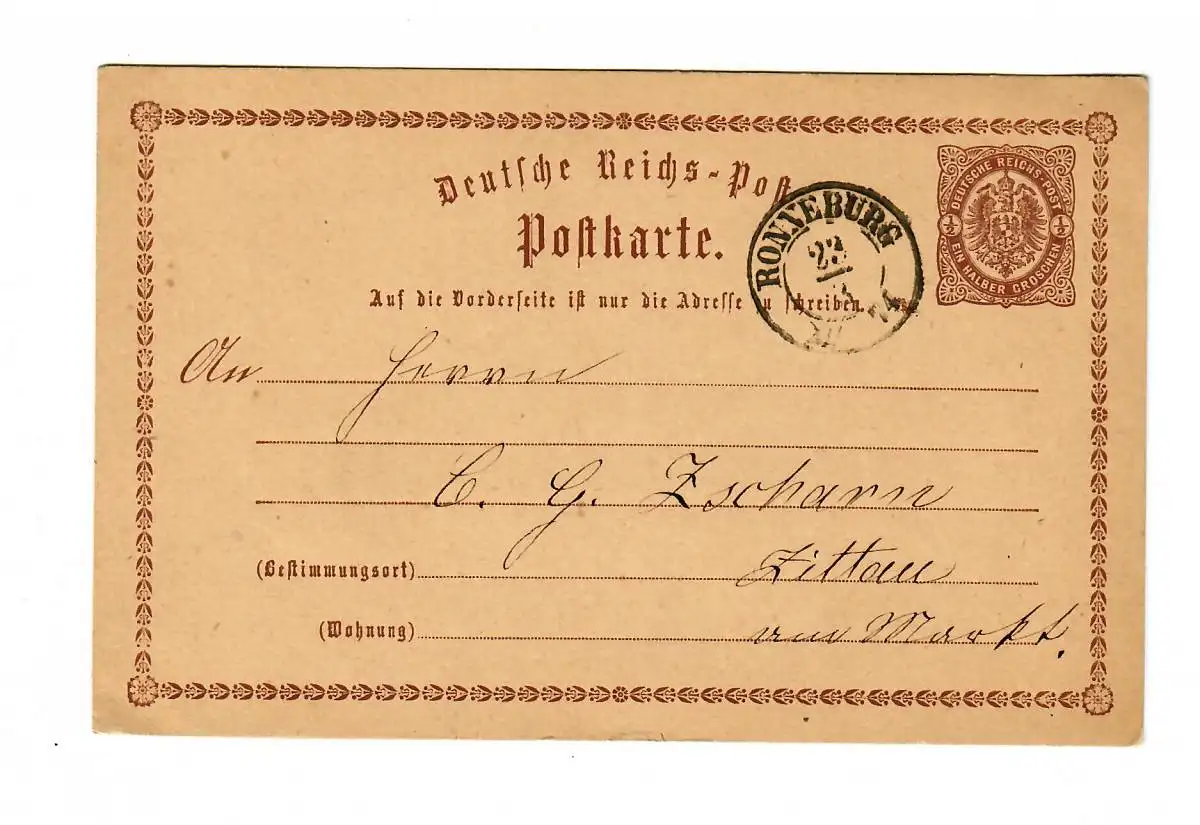 Deutsche Reichs-Post
Postkarte.
Auf die Vorderseite ist nur die Adresse zu schreiben.
RONNEBURG
23
DEUTSCHE REICHS-POST
½ ½
EIN HALBER GROSCHEN
An Herrn
C. G. Zscharn
(Bestimmungsort) Zittau
(Wohnung) am Markt.